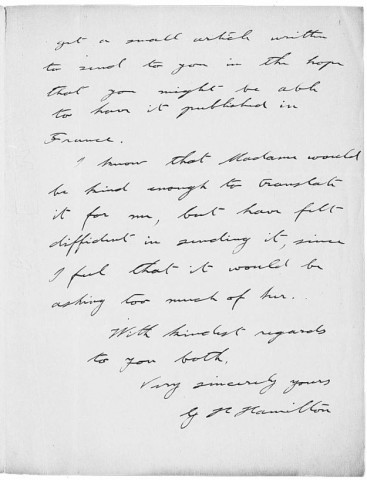 get a small article written
to send to you in the hope
that you might be able
to have it published in
France.
I know that Madame would
be kind enough to translate
it for me, but have felt
diffident in sending it, since
I feel that it would be
asking too much of her.
With kindest regards
to you both,
Very sincerely yours
G H Hamilton